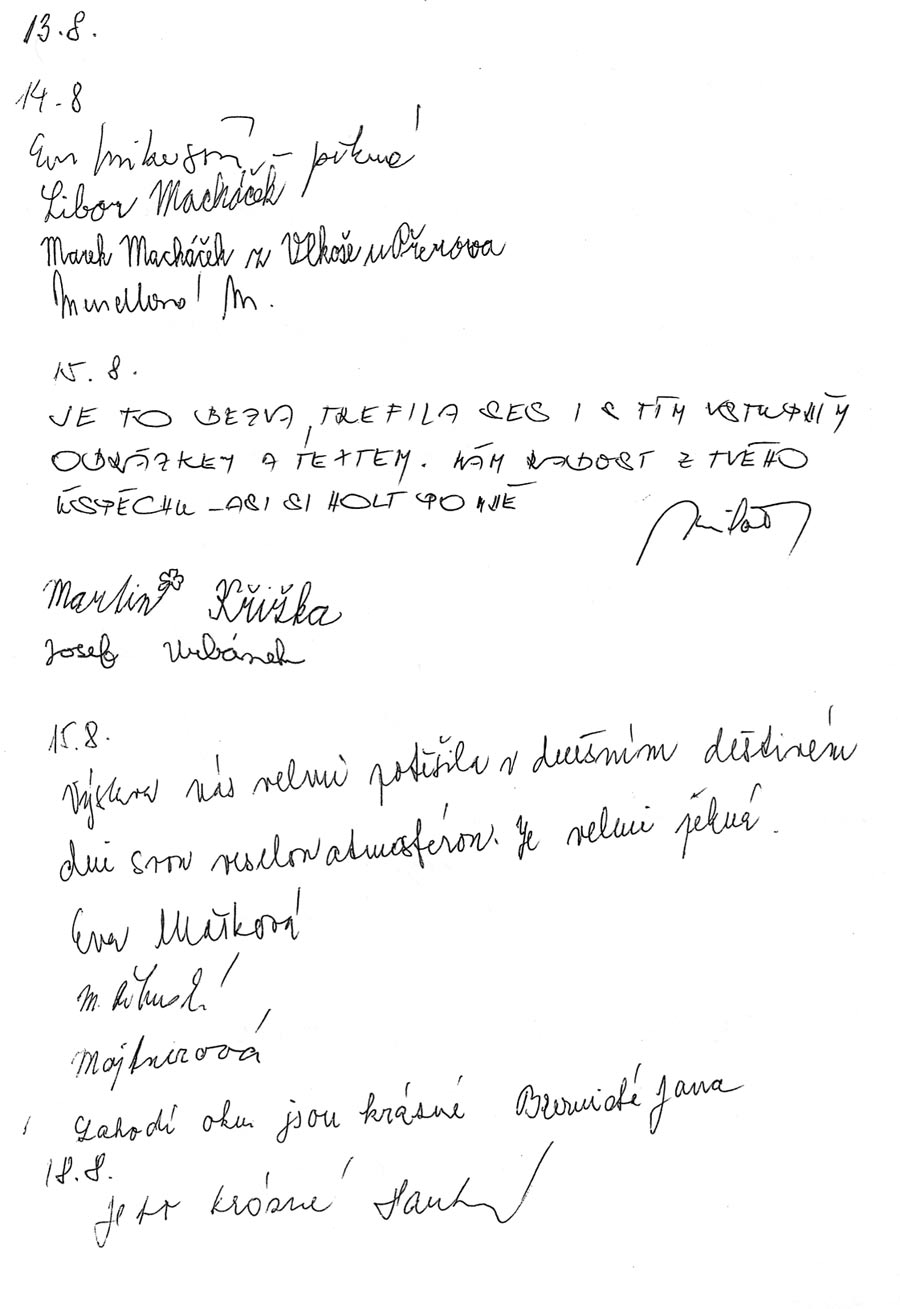 13.8.
14.8
– pěkné
Libor Macháček
Marek Macháček z Vlkoše u Přerova
M.
15. 8.
JE TO BEZVA, TREFILA SES I S TÍM VSTUPNÍM
OBRÁZKEM A TEXTEM. MÁM RADOST Z TVÉHO
ÚSPĚCHU – ASI SI HOLT PO MNĚ
Martin Křiška
Josef Urbánek
15.8.
Výstava nás velmi potěšila v dnešním deštivém
dni svou veselou atmosférou. Je velmi pěkná.
Eva Mašková
M.
Majtnerová
Lahodí oku jsou krásné Jana
18.8.
Je to krásné